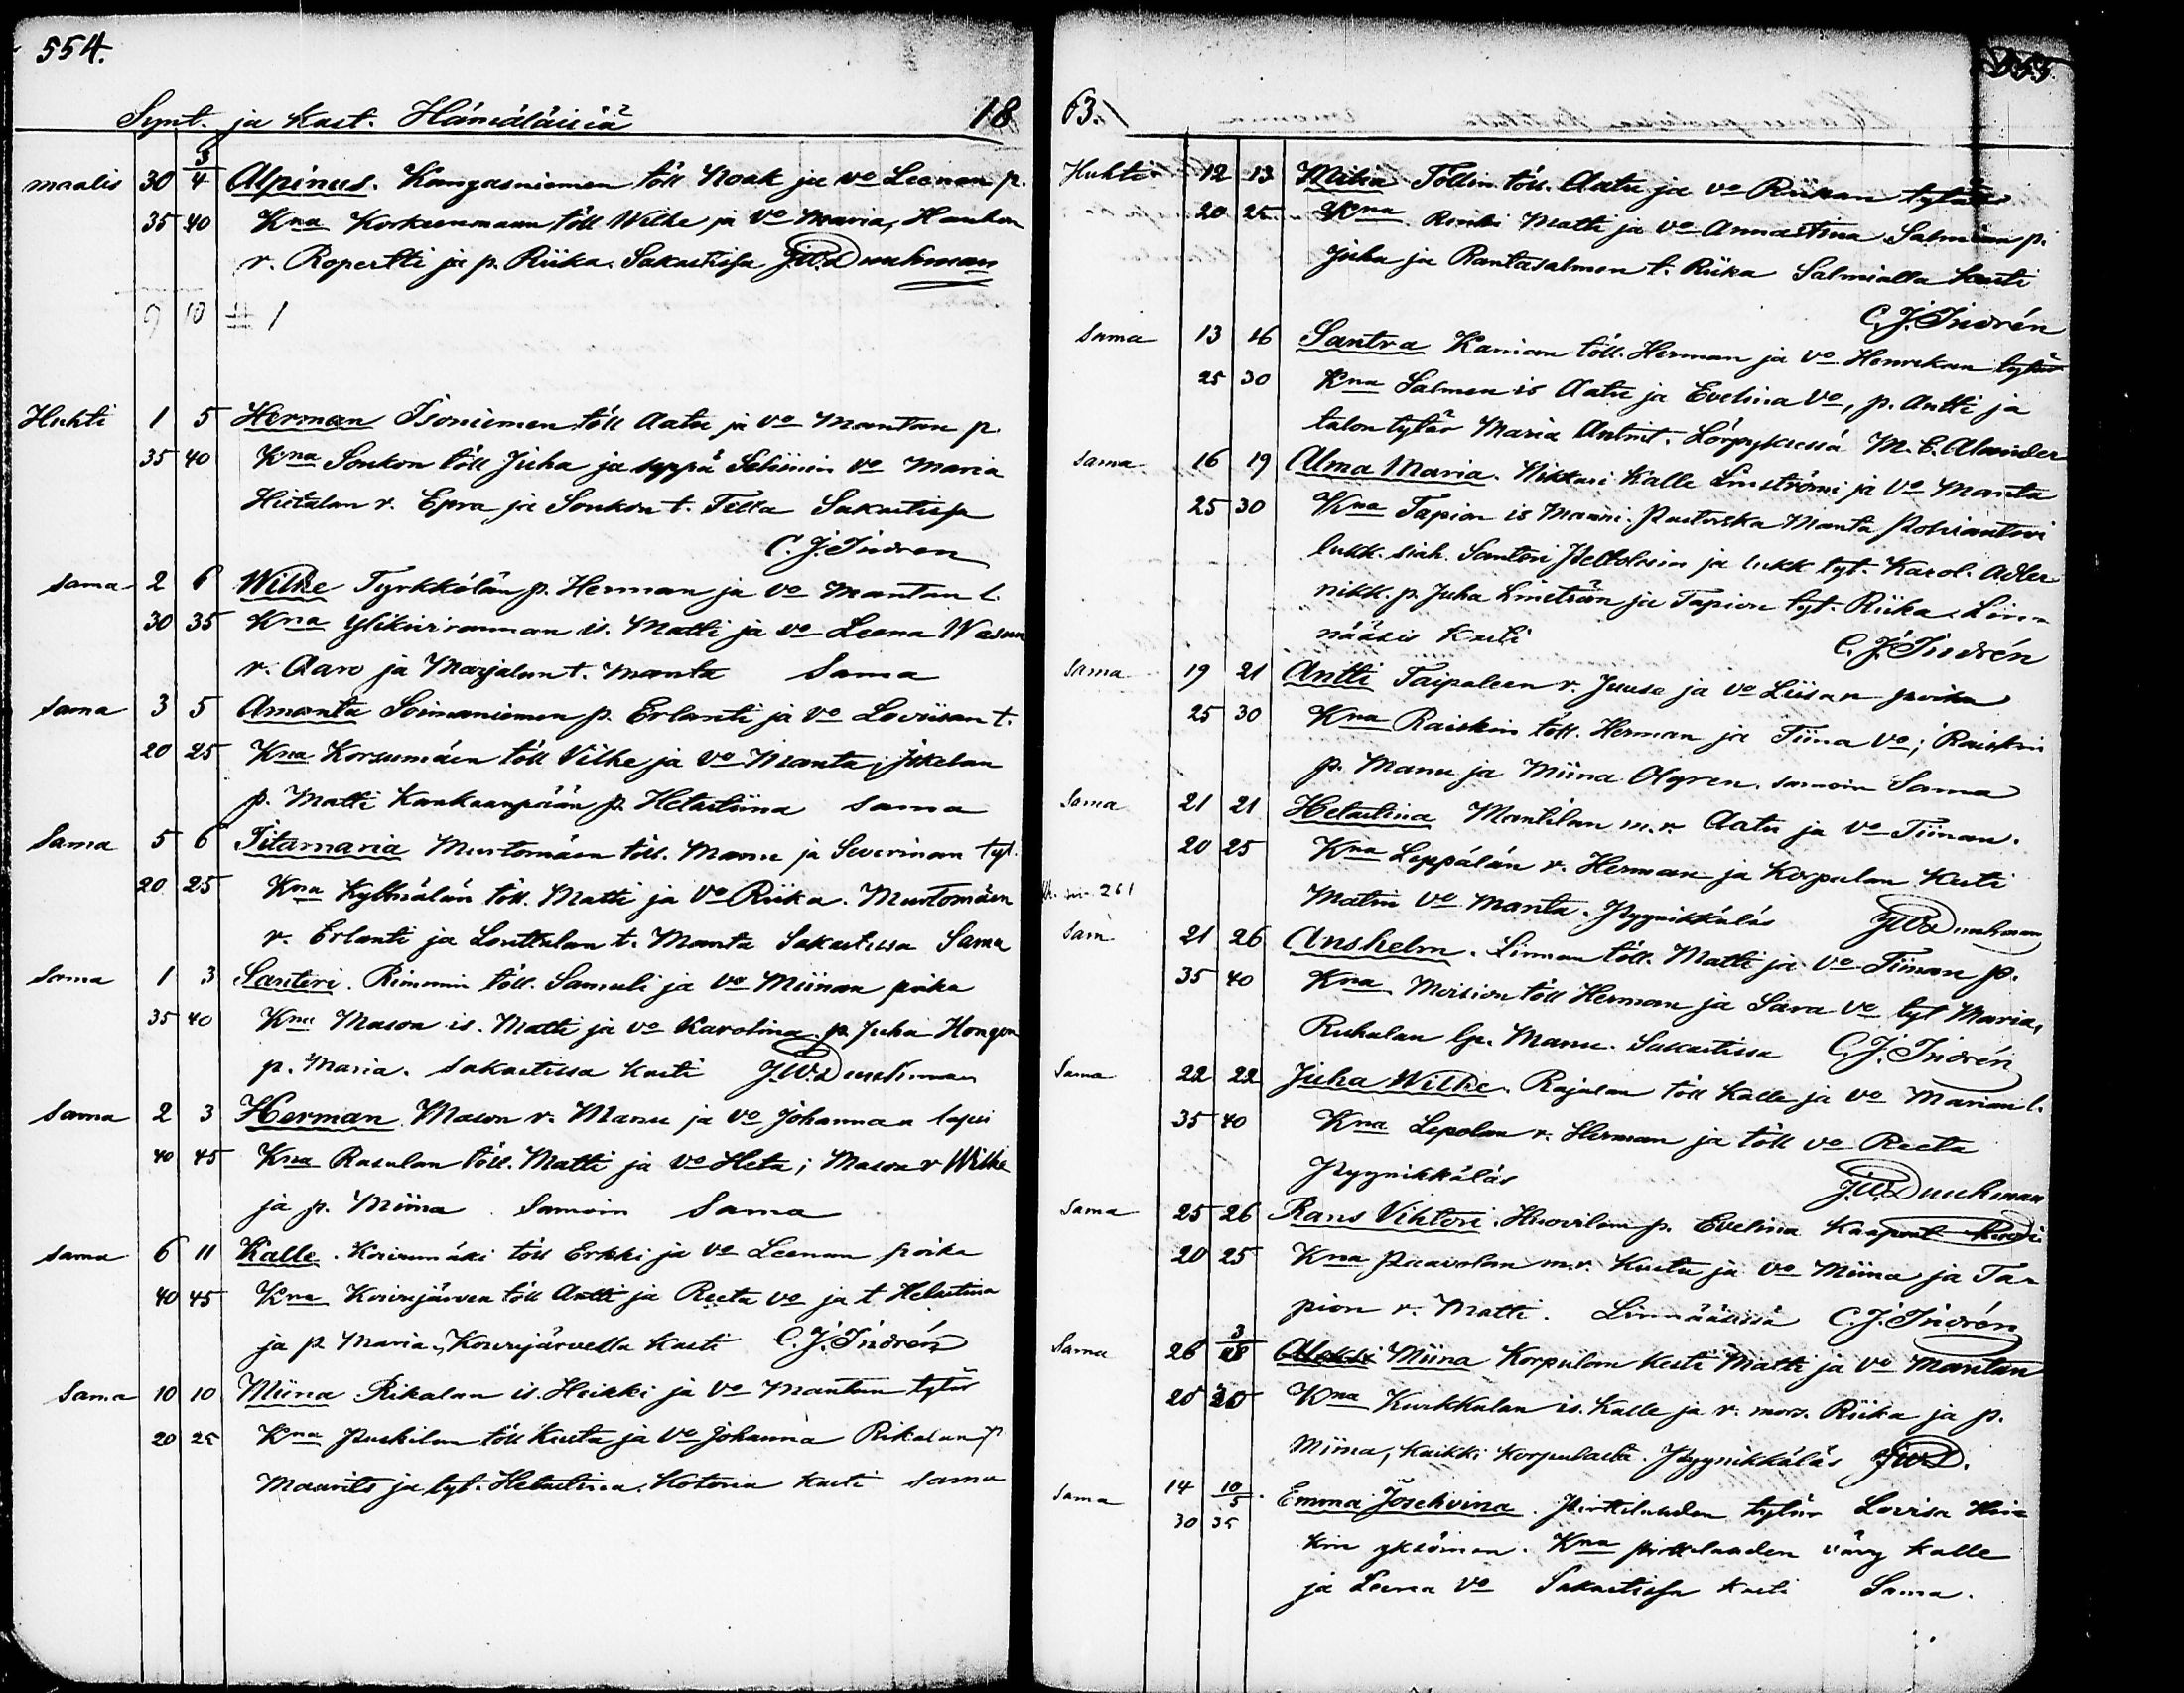 554.
Synt. ja Kast. Hämäläisiä 18
maalis 30 3/4 Alpinus. Kangasniemen töll Noak ja vo Leenan p.
35 40 Kna Korkeenmaan töll Wilhe ja Vo Maria, Hauhon
r. Ropertti ja p. Riika. Sakastissa JWDuuhman
9 10 # 1
Huhti 1 5 Herman Isoniemen töll Aatu ja Vo Mantan p.
35 40 Kna Sonkon töll Juha ja seppä Vo Maria
Hietalan r. Epra ja Sonkon t. Sakastissa
C. J. Indren
sama 2 6 Wilhe Tyrkkölän p. Herman ja Vo Mantan l.
30 35 Kna is. Matti ja vo Leena
r. Aaro ja Marjalan t. Manta Sama
sama 3 5 Amanta Soinaniemen p. Erlanti ja Vo Loviisan t.
20 25 Kna Korsumäen töll Vilhe ja Vo Manta, Jskalan
p. Matti Kankaanpään p. Hetastiina sama
Sama 5 6 Iitamaria Murtomäen töll. Manu ja Severinan tyt.
20 25 Kna Kylkiälän töll. Matti ja Vo Riika. Murtomäen
r. Erlanti ja t. Manta Sakastissa Sama
Sama 1 3 Santeri. Rimmin töll. Samuli ja Vo Miinan poika
35 40 Kna Mason is. Matti ja vo Karolina p. Juha Hongon
p. Maria. Sakastissa kasti J.W.Duuhman
Sama 2 3 Herman Mason r. Manu ja vo Johannan lapsi
40 45 Kna Rasulan töll. Matti ja Vo Heta; Mason r Wilhe
ja p. Miina Samoin Sama
sama 6 11 Kalle. Koivumäki töll Erkki ja vo Leenan poika
40 45 Kna Koivujärven töll Antti ja Reeta vo ja t Hetastina
ja p Maria, Koivujärvellä kasti C. J. Indrén
Sama 10 10 Miina Rikalan is. Heikki ja Vo Mantan tytär
20 25 Kna Puskilan töll Kusta ja Vo Johanna Rikalan p
Maarits ja tyt. Hetastina. Kotona kasti sama
63.
555.
Huhti 12 13 Töllin töll. Aatu ja vo Riikan tytär
20 25 Kna Renki Matti ja Vo Annastina Salmian p.
Juha ja Rantasalmen t. Riika Salmialla kasti
C. J. Indrén
Sama 13 16 Santra Kanian töll. Herman ja Vo Henrikan tytär
25 30 Kna Salmen is Aatu ja Evelina Vo, p. Antti ja
talon tytär Maria Antint. M. E. Alander
sama 16 19 Alma Maria. Nikkari Kalle Linströmi ja Vo Manta
25 30 Kna Tapion is Manni. Pastorska Manta Polviantteri
lukk. siah. Santeri ja lukk tyt. Karol. Adler
nikk. p. Juha Linström ja Tapion tyt. Riika. Lin-
nääsis kasti C. J. Indrén
Sama 19 21 Antti Taipaleen r. Juuse ja vo Liisan poika
25 30 Kna Raiskin töll. Herman ja Tiina Vo; Raiskin
p. Manu ja Miina Olgren. samoin Sama
Sama 21 21 Hetastina Mantilan m.r. Aatu ja Vo Tiinan.
20 25 Kna Leppälän r. Herman ja Korpulan Kusti
261 Matin Vo Manta. Pyynikkäläs JWDuuhman
Sam 21 26 Anshelm. Linnan töll. Matti ja Vo Tiinan p.
35 40 Kna Moision töll Herman ja Sara Vo tyt Maria,
Ruhalan lp. Manu. Sakastissa C. J. Indrén
Sama 22 22 Juha Wilhe. Rajalan töll Kalle ja Vo Marian l.
35 40 Kna Lepolan r. Herman ja töll vo Reeta
Pyynikkäläs J.W.Duuhman
Sama 25 26 Rans Vihtori. Huovilan p. Evelina
20 25 Kna Paavolan m.r. Kusta ja Vo Miina ja Ta-
pion r. Matti. Linnääsissä C. J. Indrén
Sama 26 3/28 Aleksi Miina Korpulan Kusti Matti ja Vo Mantan
20 25 Kna Kurkkulan is. Kalle ja r. mors. Riika ja p.
Miina, kaikki Korpulasta. Pyynikkäläs JWD.
Sama 14 10/5. Emma Josehvina. tytär Lovisa Hei-
30 35 kin yksöinen. Kna vävy Kalle
ja Leena Vo Sakastissa kasti Sama.